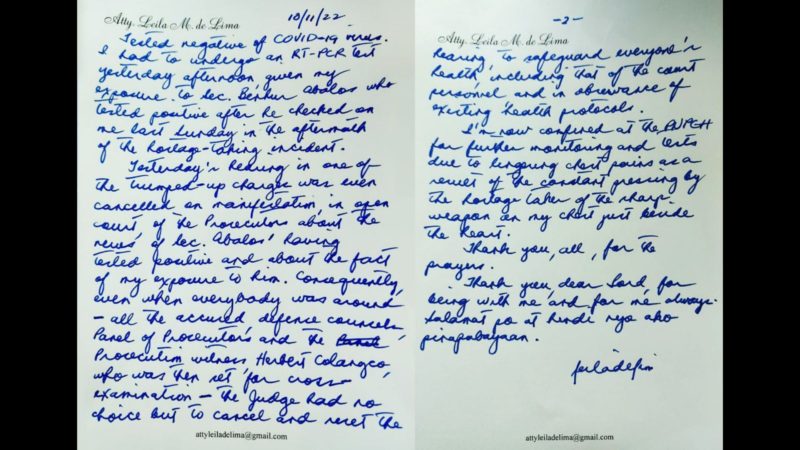 Atty. Leila M. de Lima
10/11/22
Tested negative of COVID-19 virus.
I had to undergo an RT-PCR test
yesterday afternoon, given my
exposure to Sec. Benhur Abalos who
tested positive after he checked on
me last Sunday in the aftermath
of the hostage-taking incident.
Yesterday's hearing in one of
the trumped-up charges was even
cancelled on manifestation, in open
court, of the Prosecutors about the
news of Sec. Abalos' having
tested positive and about the fact
of my exposure to him. Consequently,
even when everybody was around
– all the accused, defense counsels,
Panel of Prosecutors and the
Prosecution witness Herbert Colangco,
who was then set for cross-
examination – the Judge had no
choice but to cancel and reset the
attyleiladelima@gmail.com
-2-
Atty. Leila M. de Lima
hearing to safeguard everyone's
health, including that of the court
personnel and in observance of
existing health protocols.
I'm now confined at the PNPGH
for further monitoring and tests
due to lingering chest pains as a
result of the constant pressing by
the hostage taker of the sharp
weapon on my chest just beside
the heart.
Thank you, all, for the
prayers.
Thank you, dear Lord, for
being with me and for me, always.
Salamat po at hindi nyo ako
pinapabayaan.
attyleiladelima@gmail.com